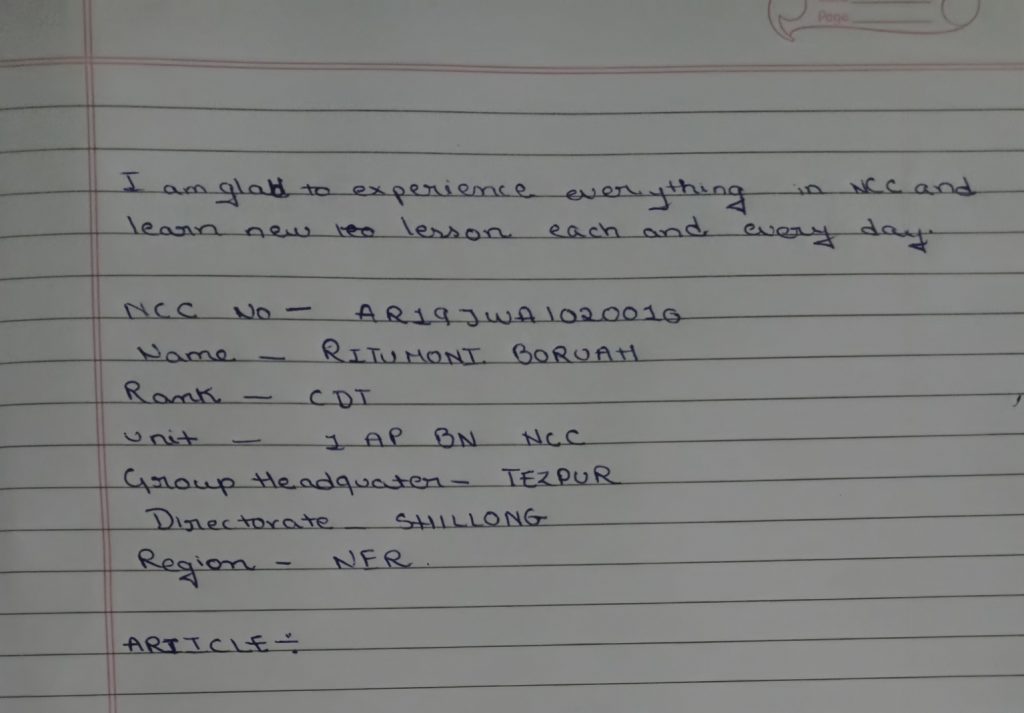 Page
I am glad to experience everything in NCC and
learn new lesson each and every day.
NCC No - AR19JWA1020016
Name - RITUMONI BORUAH
Rank - CDT
Unit - 1 AP BN NCC
Group Headquater - TEZPUR
Directorate - SHILLONG
Region - NER.
ARTICLE ÷